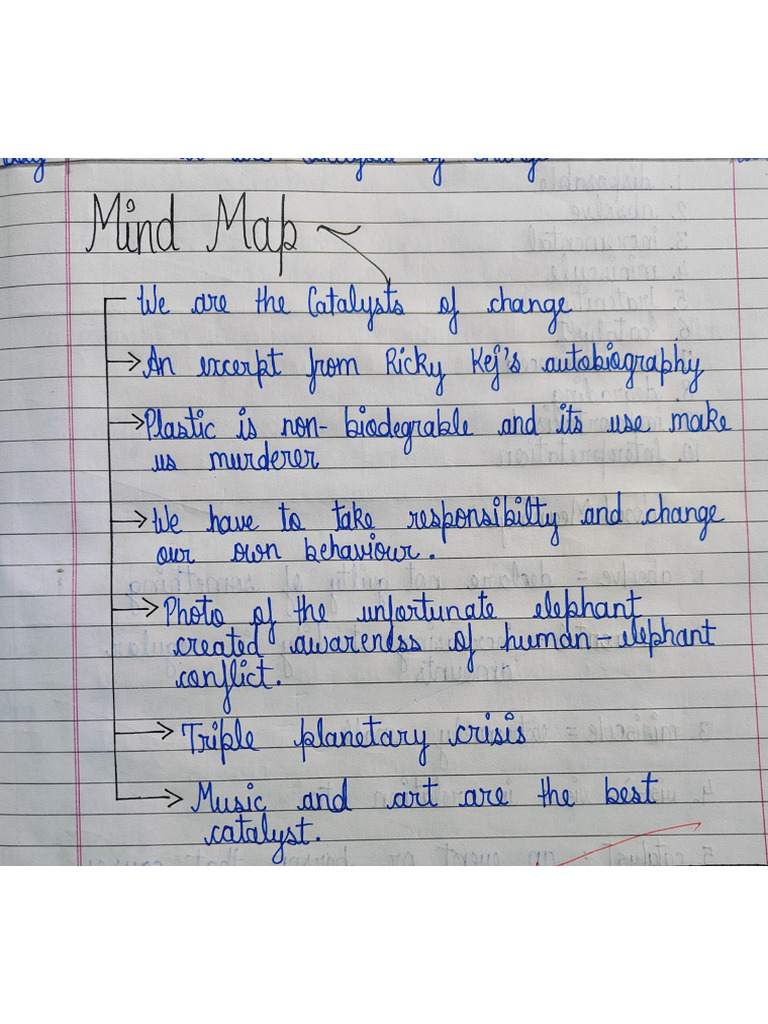 Mind Map
We are the Catalysts of change
An excerpt from Ricky Kej's autobiography
Plastic is non-biodegrable and its use make
us murderer
We have to take responsibilty and change
our own behaviour.
Photo of the unfortunate elephant
created awareness of human-elephant
conflict.
Triple planetary crisis
Music and art are the best
catalyst.